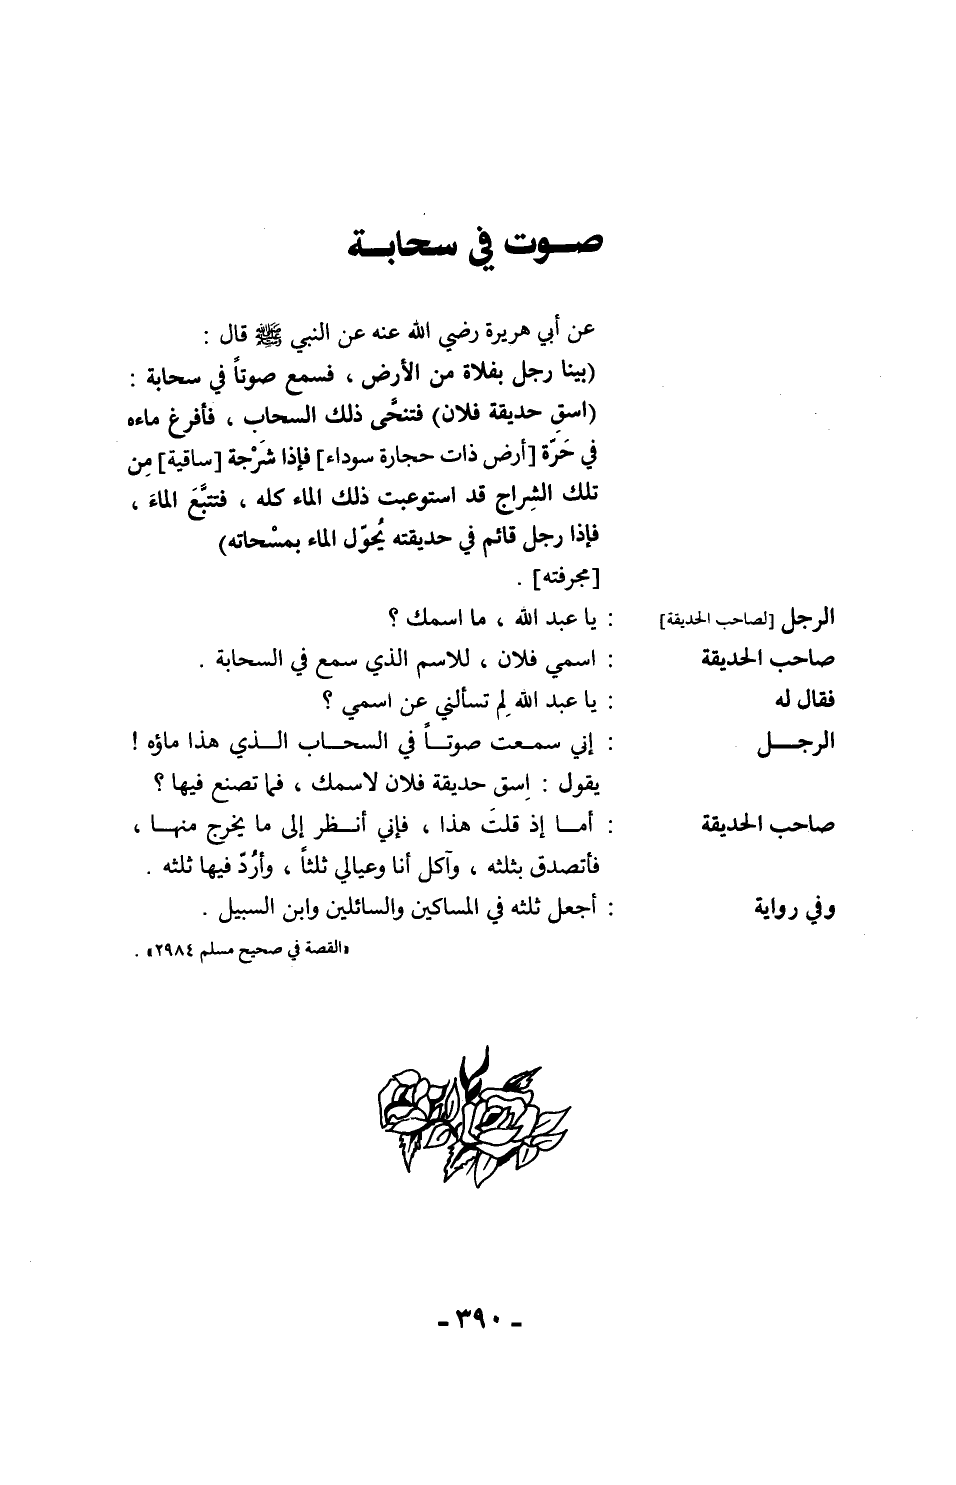 صـوت في سحابـة
عن أبي هريرة رضي الله عنه عن النبي ﷺ قال :
(بينا رجل بفلاة من الأرض ، فسمع صوتاً في سحابة :
(اسقِ حديقة فلان) فتنحَّى ذلك السحاب ، فأفرغ ماءه
في حَرّة [أرض ذات حجارة سوداء] فإذا شَرْجة [ساقية] مِن
تلك الشِراج قد استوعبت ذلك الماء كله ، فتتبَّعَ الماءَ ،
فإذا رجل قائم في حديقته يُحوّل الماء بمسْحاته)
[مجرفته] .
الرجل [لصاحب الحديقة] : يا عبد الله ، ما اسمك ؟
صاحب الحديقة : اسمي فلان ، للاسم الذي سمع في السحابة .
فقال له : يا عبد الله لِم تسألني عن اسمي ؟
الرجـــل : إني سمـعت صوتـاً في السحـاب الـذي هذا ماؤه !
يقول : اِسق حديقة فلان لاسمك ، فما تصنع فيها ؟
صاحب الحديقة : أمـا إذ قلتَ هذا ، فإني أنـظر إلى ما يخرج منهـا ،
فأتصدق بثلثه ، وآكل أنا وعيالي ثلثاً ، وأرُدّ فيها ثلثه .
وفي رواية : أجعل ثلثه في المساكين والسائلين وابن السبيل .
«القصة في صحيح مسلم ٢٩٨٤» .
- ٣٩٠ -